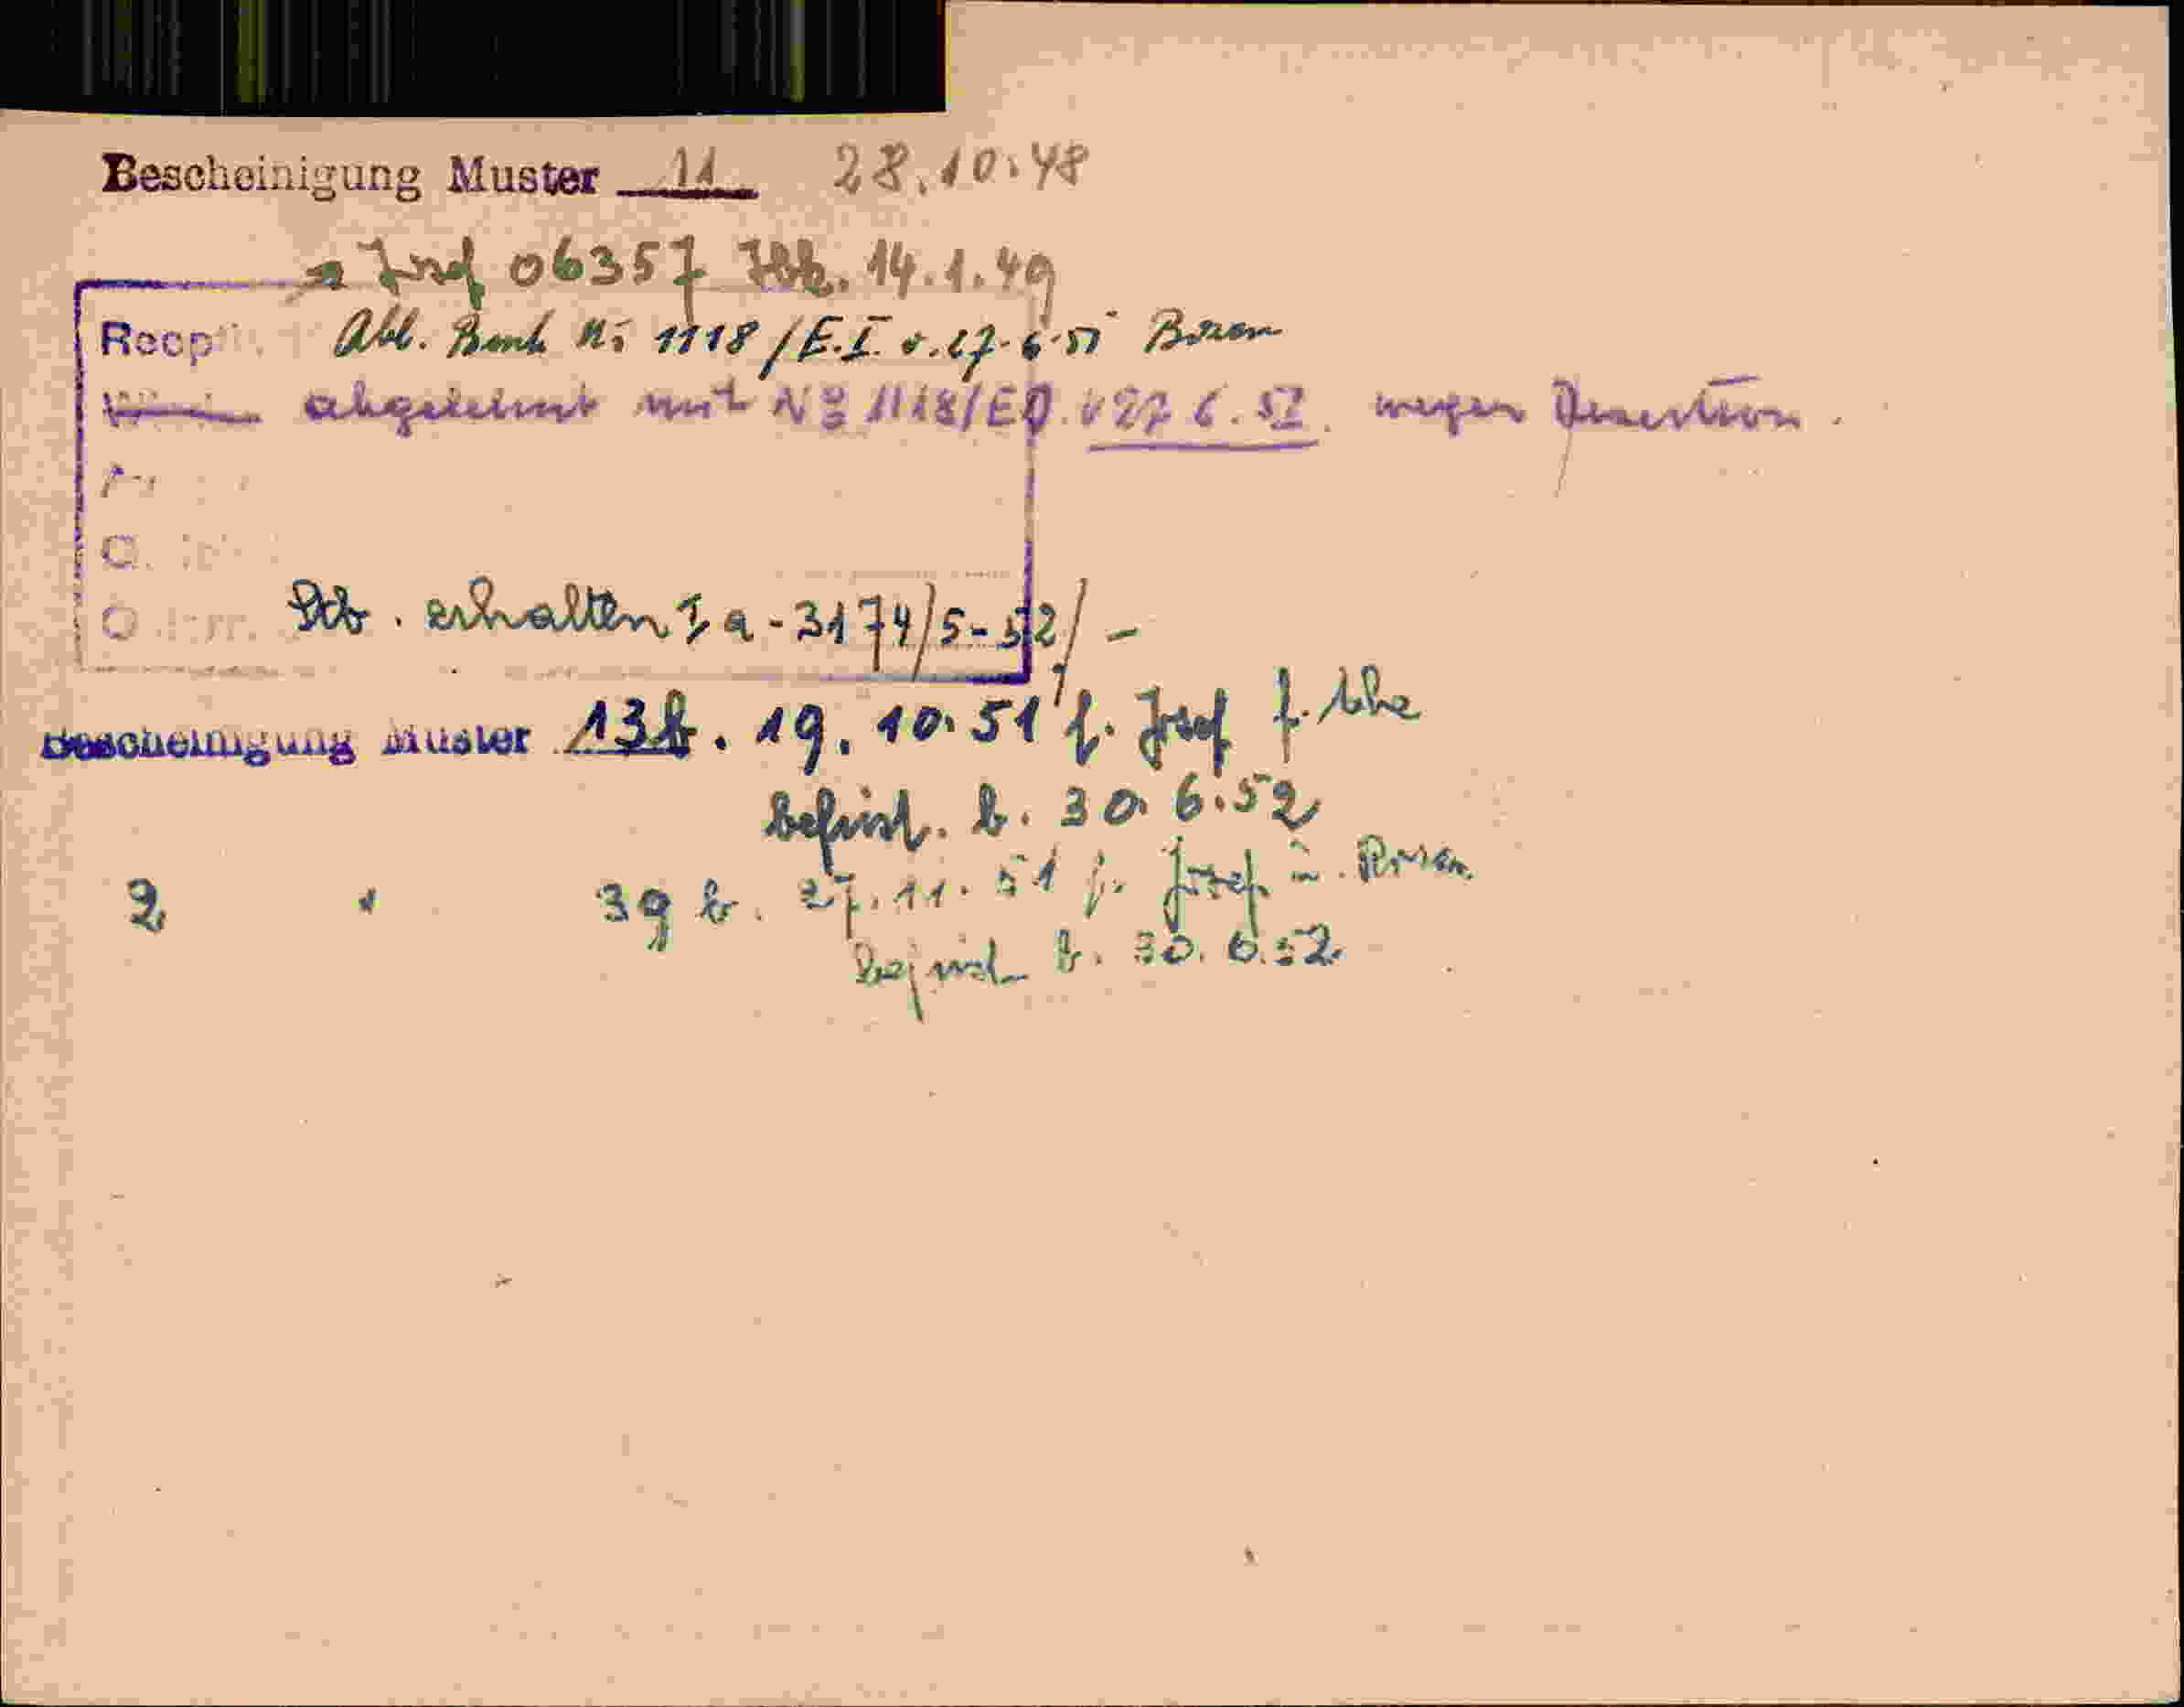 Bescheinigung Muster 11 28.10.48
Josef 06357 Ibk. 14.1.49
Reopti. Abl. Besch Nr 1118/E.I. v. 27.6.51 Bozen
abgelehnt mit No 1118/EO. v 27 6. 51. wegen Desertion.
Stb. erhalten I a - 3174/5-52/-
Bescheinigung Muster 13b. 19. 10. 51 f. Josef f. Ehe
befrist. b. 30. 6. 52
2 " 39 b. 27. 11. 51 f. Josef n. Bozen.
befrist b. 30. 6. 52